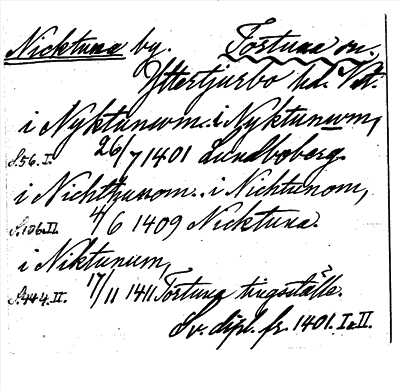 Nicktuna by. Tortuna sn.
Yttertjurbo hd. Vstm.
i Nyktunum. i Nyktunum,
S. 56. I. 26/7 1401 Lundboberg.
i Nichtunom. i Nichtunom,
S. 106. II. 4/6 1409 Nicktuna.
i Niktunum,
S. 444. II. 17/11 1411 Tortuna tingställe.
Sv. dipl. fr. 1401. I o. II.